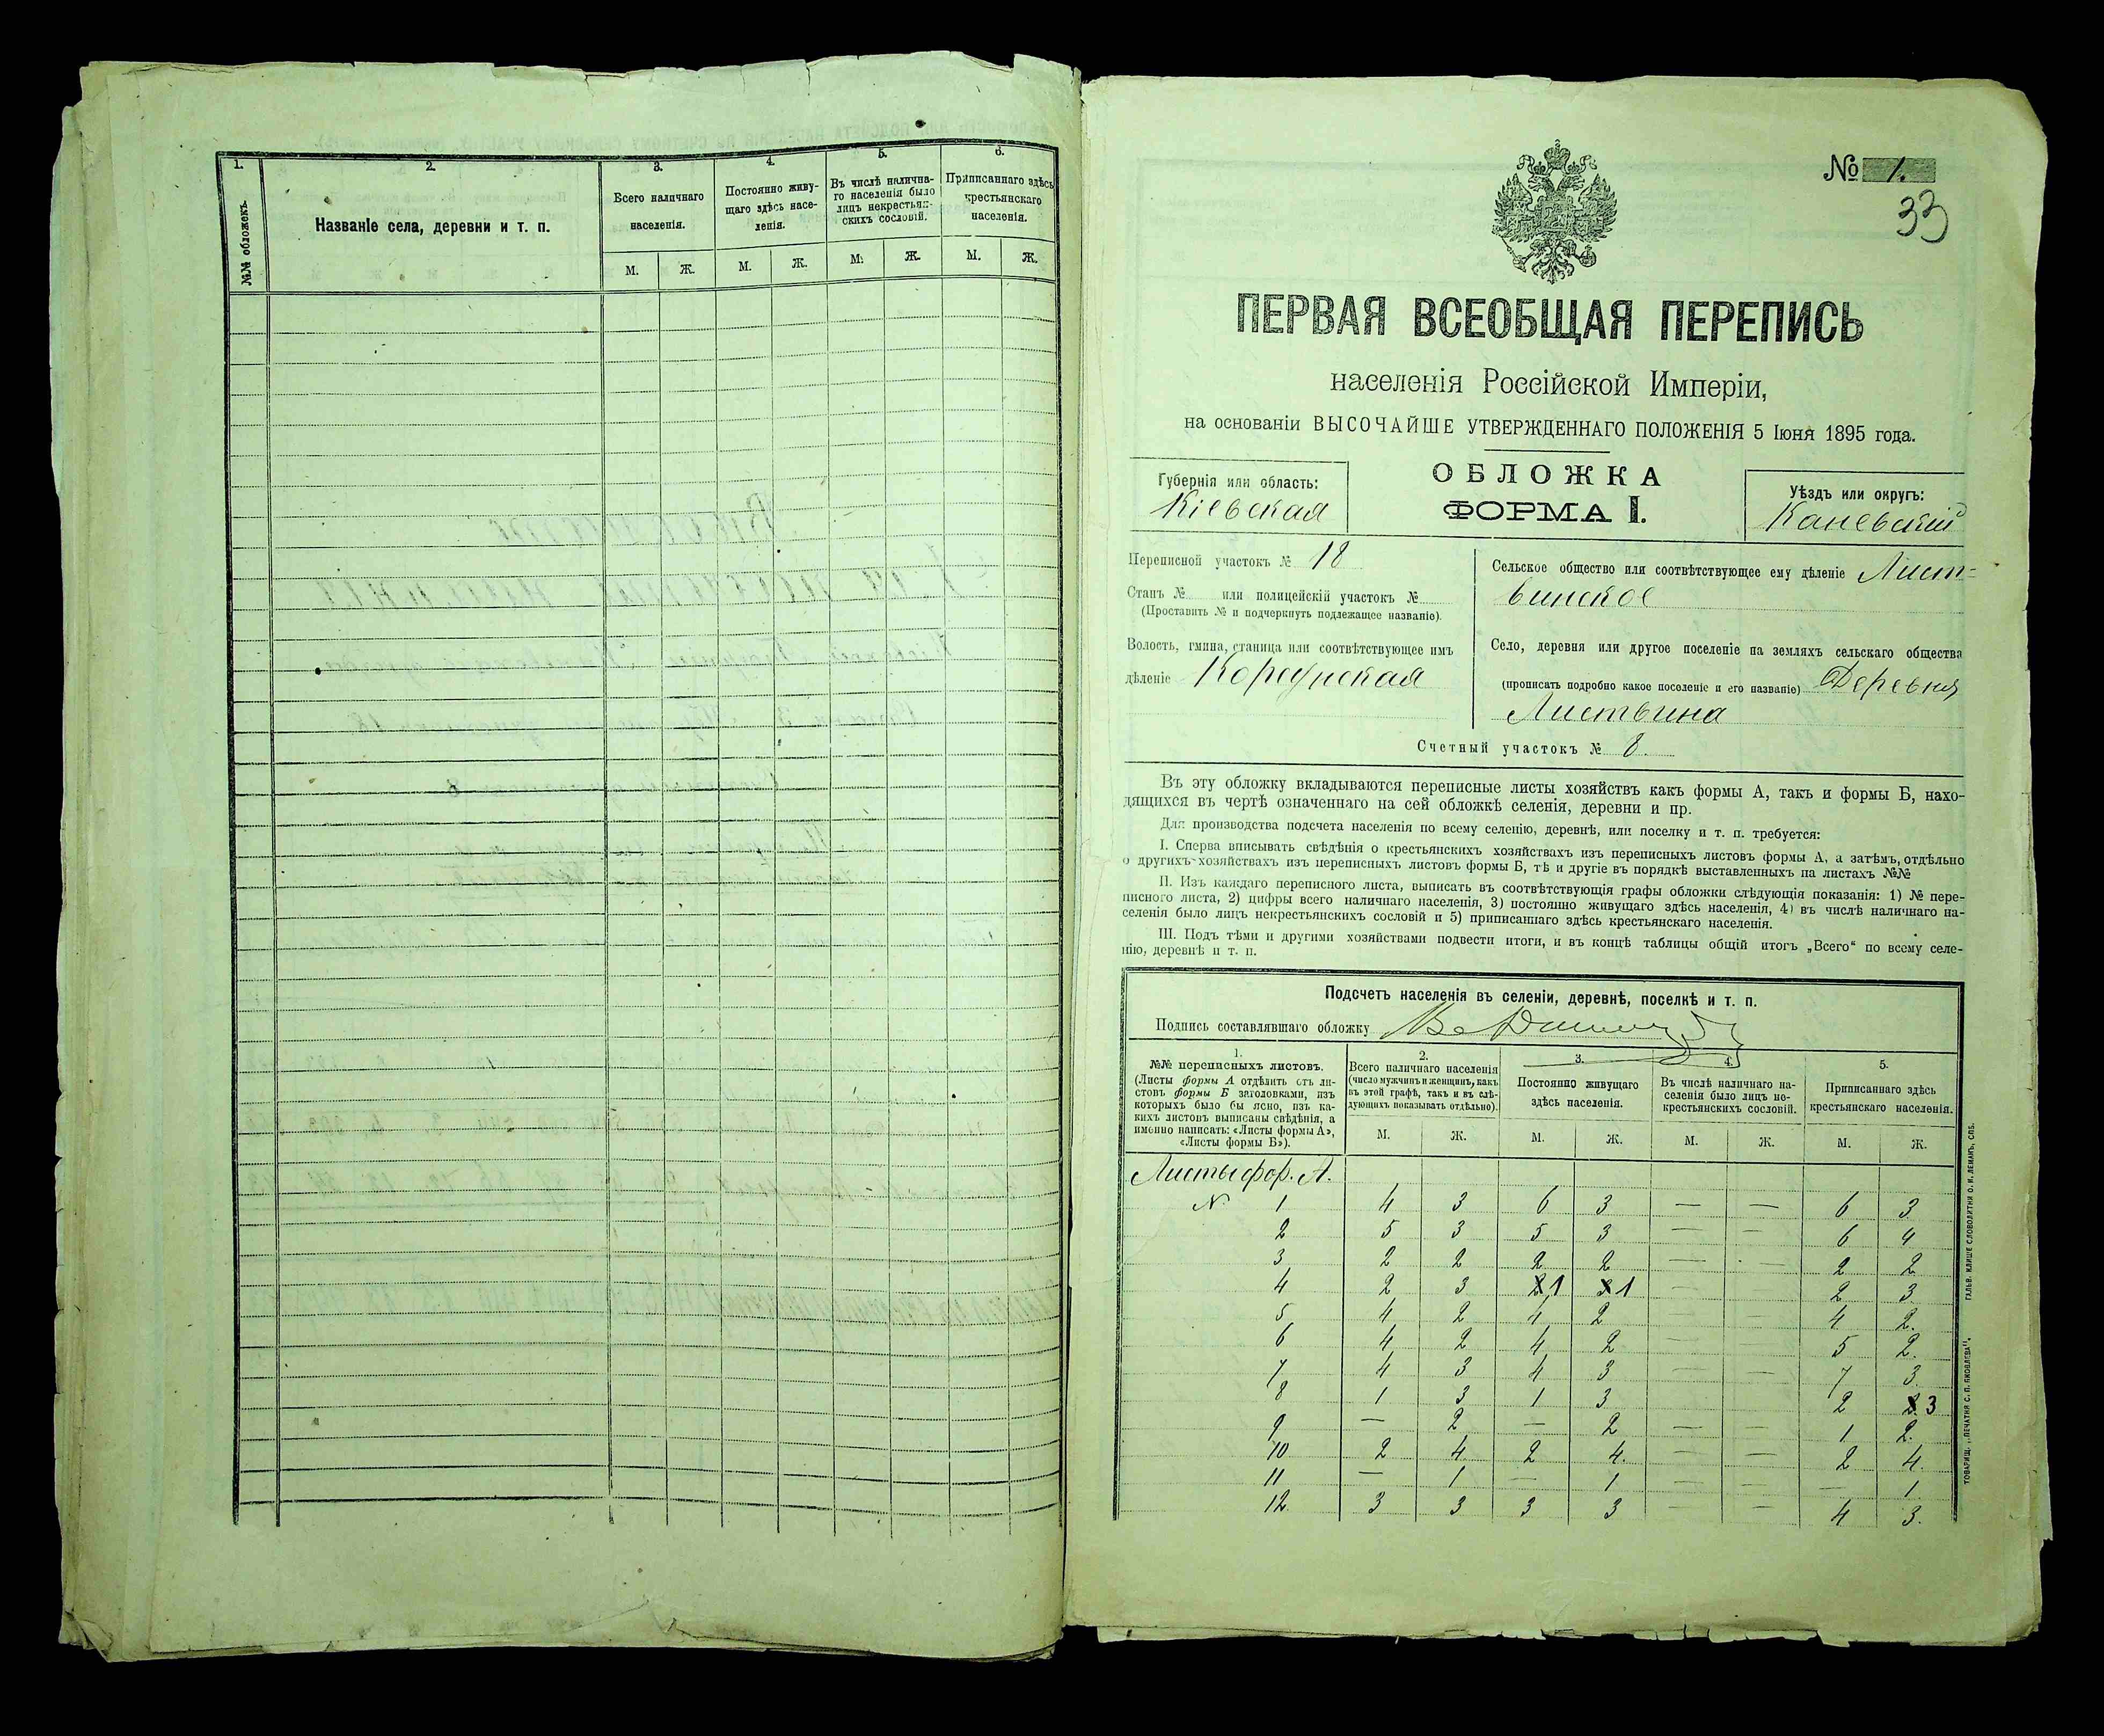 1.
2.
3.
4.
5.
6.
№№ обложекъ.
Названіе села, деревни и т. п.
Всего наличнаго
населенія.
Постоянно живу-
щаго здѣсь насе-
ленія.
Въ числѣ налична-
го населенія было
лицъ некрестьян-
скихъ сословій.
Приписаннаго здѣсь
крестьянскаго
населенія.
М. Ж. М. Ж. М. Ж. М. Ж.
№ 1.
33
ПЕРВАЯ ВСЕОБЩАЯ ПЕРЕПИСЬ
населенія Россійской Имперіи,
на основаніи ВЫСОЧАЙШЕ УТВЕРЖДЕННАГО ПОЛОЖЕНІЯ 5 Іюня 1895 года.
Губернія или область:
Кіевская
ОБЛОЖКА
ФОРМА I.
Уѣздъ или округъ:
Каневскій
Переписной участокъ № 18
Станъ № или полицейскій участокъ №
(Проставить № и подчеркнуть подлежащее названіе).
Волость, гмина, станица или соотвѣтствующее имъ
дѣленіе Корсунская
Сельское общество или соотвѣтствующее ему дѣленіе Лист=
винское
Село, деревня или другое поселеніе на земляхъ сельскаго общества
(прописать подробно какое поселеніе и его названіе) Деревня
Листвина
Счетный участокъ № 8.
Въ эту обложку вкладываются переписные листы хозяйствъ какъ формы А, такъ и формы Б, нахо-
дящихся въ чертѣ означеннаго на сей обложкѣ селенія, деревни и пр.
Для производства подсчета населенія по всему селенію, деревнѣ, или поселку и т. п. требуется:
I. Сперва вписывать свѣдѣнія о крестьянскихъ хозяйствахъ изъ переписныхъ листовъ формы А, а затѣмъ, отдѣльно
о другихъ хозяйствахъ изъ переписныхъ листовъ формы Б, тѣ и другіе въ порядкѣ выставленныхъ на листахъ №№
II. Изъ каждаго переписного листа, выписать въ соотвѣтствующія графы обложки слѣдующія показанія: 1) № пере-
писного листа, 2) цифры всего наличнаго населенія, 3) постоянно живущаго здѣсь населенія, 4) въ числѣ наличнаго на-
селенія было лицъ некрестьянскихъ сословій и 5) приписаннаго здѣсь крестьянскаго населенія.
III. Подъ тѣми и другими хозяйствами подвести итоги, и въ концѣ таблицы общій итогъ „Всего“ по всему селе-
нію, деревнѣ и т. п.
Подсчетъ населенія въ селеніи, деревнѣ, поселкѣ и т. п.
Подпись составлявшаго обложку
1.
№№ переписныхъ листовъ.
(Листы формы А отдѣлить отъ ли-
стовъ формы Б заголовками, изъ
которыхъ было бы ясно, изъ ка-
кихъ листовъ выписаны свѣдѣнія, а
именно написать: «Листы формы А»,
«Листы формы Б»).
2.
Всего наличнаго населенія
(число мужчинъ и женщинъ, какъ
въ этой графѣ, такъ и въ слѣ-
дующихъ показывать отдѣльно).
3.
Постоянно живущаго
здѣсь населенія.
4.
Въ числѣ наличнаго на-
селенія было лицъ не-
крестьянскихъ сословій.
5.
Приписаннаго здѣсь
крестьянскаго населенія.
М. Ж. М. Ж. М. Ж. М. Ж.
Листы фор. А.
№ 1 4 3 6 3 — — 6 3
2 5 3 5 3 — — 6 4
3 2 2 2 2 — — 2 2
4 2 3 1 1 — — 2 3
5 4 2 4 2 — — 4 2.
6 4 2 4 2 — — 5 2.
7 4 3 4 3 — — 7 3.
8 1 3 1 3 — — 2 3
9 — 2 — 2 — — 1 2.
10 2 4 2 4. — — 2 4.
11 — 1 — 1 — — — 1.
12. 3 3 3 3 — — 4 3.
ТОВАРИЩ. „ПЕЧАТНЯ С. П. ЯКОВЛЕВА“. ГАЛЬВ. КЛИШЕ СЛОВОЛИТНИ О. И. ЛЕМАНЪ, СПБ.